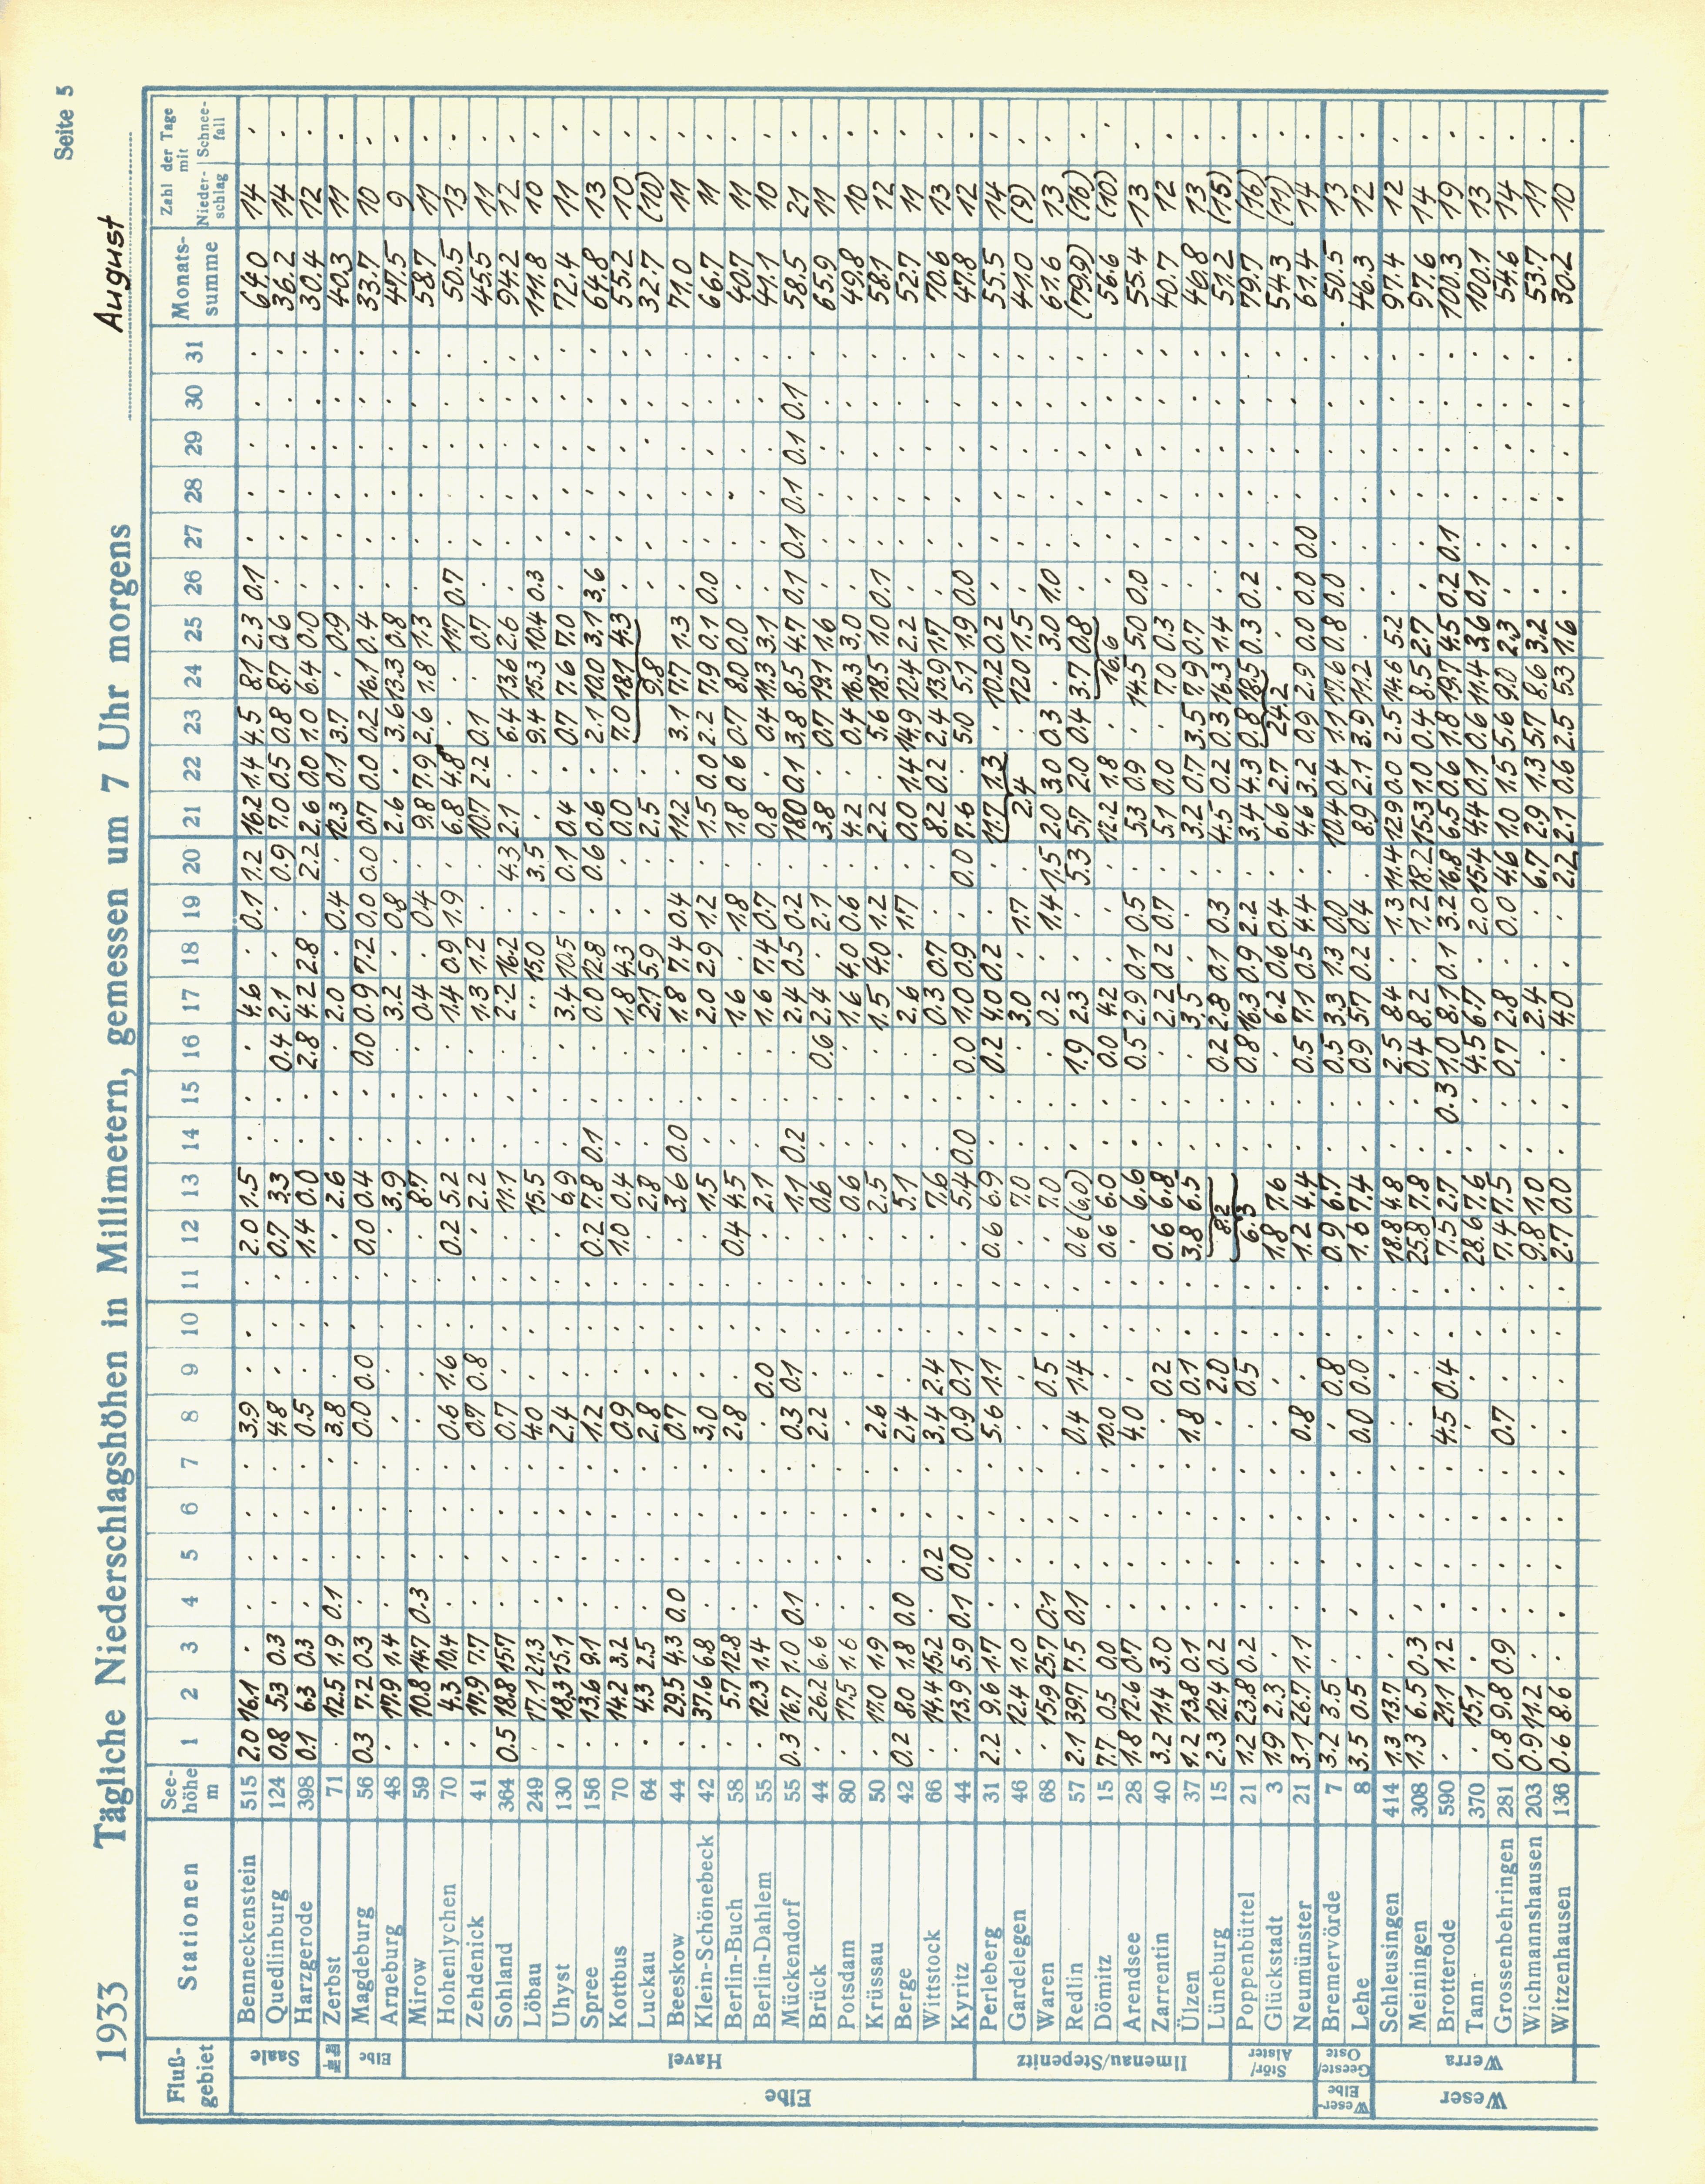 Seite 5
1933 Tägliche Niederschlagshöhen in Millimetern, gemessen um 7 Uhr morgens August
Fluß-gebiet Stationen See-höhe m 1 2 3 4 5 6 7 8 9 10 11 12 13 14 15 16 17 18 19 20 21 22 23 24 25 26 27 28 29 30 31 Monats-summe Zahl der Tage mit Nieder-schlag Schnee-fall
Elbe
Saale
Benneckenstein 515 2.0 16.1 3.9 2.0 1.5 4.6 0.1 1.2 16.2 1.4 4.5 8.1 2.3 0.1 64.0 14
Quedlinburg 124 0.8 5.3 0.3 4.8 0.7 3.3 0.4 2.1 0.9 7.0 0.5 0.8 8.7 0.6 36.2 14
Harzgerode 398 0.1 6.3 0.3 0.5 1.4 0.0 2.8 4.2 2.8 2.2 2.6 0.0 1.0 6.4 0.0 30.4 12
Zerbst 71 12.5 1.9 0.1 3.8 2.6 2.0 0.4 12.3 0.1 3.7 0.9 40.3 11
Elbe
Magdeburg 56 0.3 7.2 0.3 0.0 0.0 0.0 0.4 0.0 0.9 7.2 0.0 0.0 0.7 0.0 0.2 16.1 0.4 33.7 10
Arneburg 48 17.9 1.4 3.9 3.2 0.8 2.6 3.6 13.3 0.8 47.5 9
Havel
Mirow 59 10.8 14.7 0.3 8.7 0.4 0.4 9.8 7.9 2.6 1.8 1.3 58.7 11
Hohenlychen 70 4.3 10.4 0.6 1.6 0.2 5.2 1.4 0.9 1.9 6.8 4.8 11.7 0.7 50.5 13
Zehdenick 41 17.9 7.7 0.7 0.8 2.2 1.3 1.2 10.7 2.2 0.1 0.7 45.5 11
Sohland 364 0.5 18.8 15.7 0.7 11.1 2.2 16.2 4.3 2.1 6.4 13.6 2.6 94.2 12
Löbau 249 17.1 21.3 4.0 15.5 15.0 3.5 9.4 15.3 10.4 0.3 111.8 10
Uhyst 130 18.3 15.1 2.4 6.9 3.4 10.5 0.1 0.4 0.7 7.6 7.0 72.4 11
Spree 156 13.6 9.1 1.2 0.2 7.8 0.1 0.0 12.8 0.6 0.6 2.1 10.0 3.1 3.6 64.8 13
Kottbus 70 14.2 3.2 0.9 1.0 0.4 1.8 4.3 0.0 7.0 18.1 4.3 55.2 10
Luckau 64 4.3 2.5 2.8 2.8 2.1 5.9 2.5 9.8 32.7 (10)
Beeskow 44 29.5 4.3 0.0 0.7 3.6 0.0 1.8 7.4 0.4 11.2 3.1 7.7 1.3 71.0 11
Klein-Schönebeck 42 37.6 6.8 3.0 1.5 2.0 2.9 1.2 1.5 0.0 2.2 7.9 0.1 0.0 66.7 11
Berlin-Buch 58 5.7 12.8 2.8 0.4 4.5 1.6 1.8 1.8 0.6 0.7 8.0 0.0 40.7 11
Berlin-Dahlem 55 12.3 1.4 0.0 2.1 1.6 7.4 0.7 0.8 0.4 11.3 3.1 41.1 10
Mückendorf 55 0.3 16.7 1.0 0.1 0.3 0.1 1.1 0.2 2.4 0.5 0.2 18.0 0.1 3.8 8.5 4.7 0.1 0.1 0.1 0.1 0.1 58.5 21
Brück 44 26.2 6.6 2.2 0.6 0.6 2.4 2.1 3.8 0.7 19.1 1.6 65.9 11
Potsdam 80 17.5 1.6 0.6 1.6 4.0 0.6 4.2 0.4 16.3 3.0 49.8 10
Krüssau 50 17.0 1.9 2.6 2.5 1.5 4.0 1.2 2.2 5.6 18.5 1.0 0.1 58.1 12
Berge 42 0.2 8.0 1.8 0.0 2.4 5.1 2.6 1.7 0.0 1.4 14.9 12.4 2.2 52.7 11
Wittstock 66 14.4 15.2 0.2 3.4 2.4 7.6 0.3 0.7 8.2 0.2 2.4 13.9 1.7 70.6 13
Kyritz 44 13.9 5.9 0.1 0.0 0.9 0.1 5.4 0.0 0.0 1.0 0.9 0.0 7.6 5.0 5.1 1.9 0.0 47.8 12
Jlmenau/Stepenitz
Perleberg 31 2.2 9.6 1.7 5.6 1.1 0.6 6.9 0.2 4.0 0.2 11.7 1.3 10.2 0.2 55.5 14
Gardelegen 46 12.4 1.0 7.0 3.0 1.7 2.4 12.0 1.5 41.0 (9)
Waren 68 15.9 25.7 0.1 0.5 7.0 0.2 1.4 1.5 2.0 3.0 0.3 3.0 1.0 61.6 13
Redlin 57 2.1 39.7 7.5 0.1 0.4 1.4 0.6 (6.0) 1.9 2.3 5.3 5.7 2.0 0.4 3.7 0.8 (79.9) (16)
Dömitz 15 7.7 0.5 0.0 10.0 0.6 6.0 0.0 4.2 12.2 1.8 16.6 56.6 (10)
Arendsee 28 1.8 12.6 0.7 4.0 6.6 0.5 2.9 0.1 0.5 5.3 0.9 14.5 5.0 0.0 55.4 13
Zarrentin 40 3.2 11.4 3.0 0.2 0.6 6.8 2.2 0.2 0.7 5.1 0.0 7.0 0.3 40.7 12
Ülzen 37 1.2 13.8 0.1 1.8 0.1 3.8 6.5 3.5 3.2 0.7 3.5 7.9 0.7 46.8 13
Lüneburg 15 2.3 12.4 0.2 2.0 8.2 0.2 2.8 0.1 0.3 4.5 0.2 0.3 16.3 1.4 51.2 (15)
Stör/Alster
Poppenbüttel 21 1.2 23.8 0.2 0.5 6.3 0.8 16.3 0.9 2.2 3.4 4.3 0.8 18.5 0.3 0.2 79.7 (16)
Glückstadt 3 1.9 2.3 1.8 7.6 6.2 0.6 0.4 6.6 2.7 24.2 54.3 (11)
Neumünster 21 3.1 26.7 1.1 0.8 1.2 4.4 0.5 7.1 0.5 4.4 4.6 3.2 0.9 2.9 0.0 0.0 0.0 61.4 14
Weser-Elbe
Geeste/Oste
Bremervörde 7 3.2 3.5 0.8 0.9 6.7 0.5 3.3 1.3 0.0 10.4 0.4 1.1 17.6 0.8 0.0 50.5 13
Lehe 8 3.5 0.5 0.0 0.0 1.6 7.4 0.9 5.7 0.2 0.4 8.9 2.1 3.9 11.2 46.3 12
Weser
Werra
Schleusingen 414 1.3 13.7 18.8 4.8 2.5 8.4 1.3 11.4 12.9 0.0 2.5 14.6 5.2 97.4 12
Meiningen 308 1.3 6.5 0.3 25.8 7.8 0.4 8.2 1.2 18.2 15.3 1.0 0.4 8.5 2.7 97.6 14
Brotterode 590 21.1 1.2 4.5 0.4 7.5 2.7 0.3 1.0 8.1 0.1 3.2 16.8 6.5 0.6 1.8 19.7 4.5 0.2 0.1 100.3 19
Tann 370 15.1 28.6 7.6 4.5 6.7 2.0 15.4 4.4 0.1 0.6 11.4 3.6 0.1 100.1 13
Grossenbehringen 281 0.8 9.8 0.9 0.7 7.4 7.5 0.7 2.8 0.0 4.6 1.0 1.5 5.6 9.0 2.3 54.6 14
Wichmannshausen 203 0.9 11.2 9.8 1.0 2.4 6.7 2.9 1.3 5.7 8.6 3.2 53.7 11
Witzenhausen 136 0.6 8.6 2.7 0.0 4.0 2.2 2.1 0.6 2.5 5.3 1.6 30.2 10